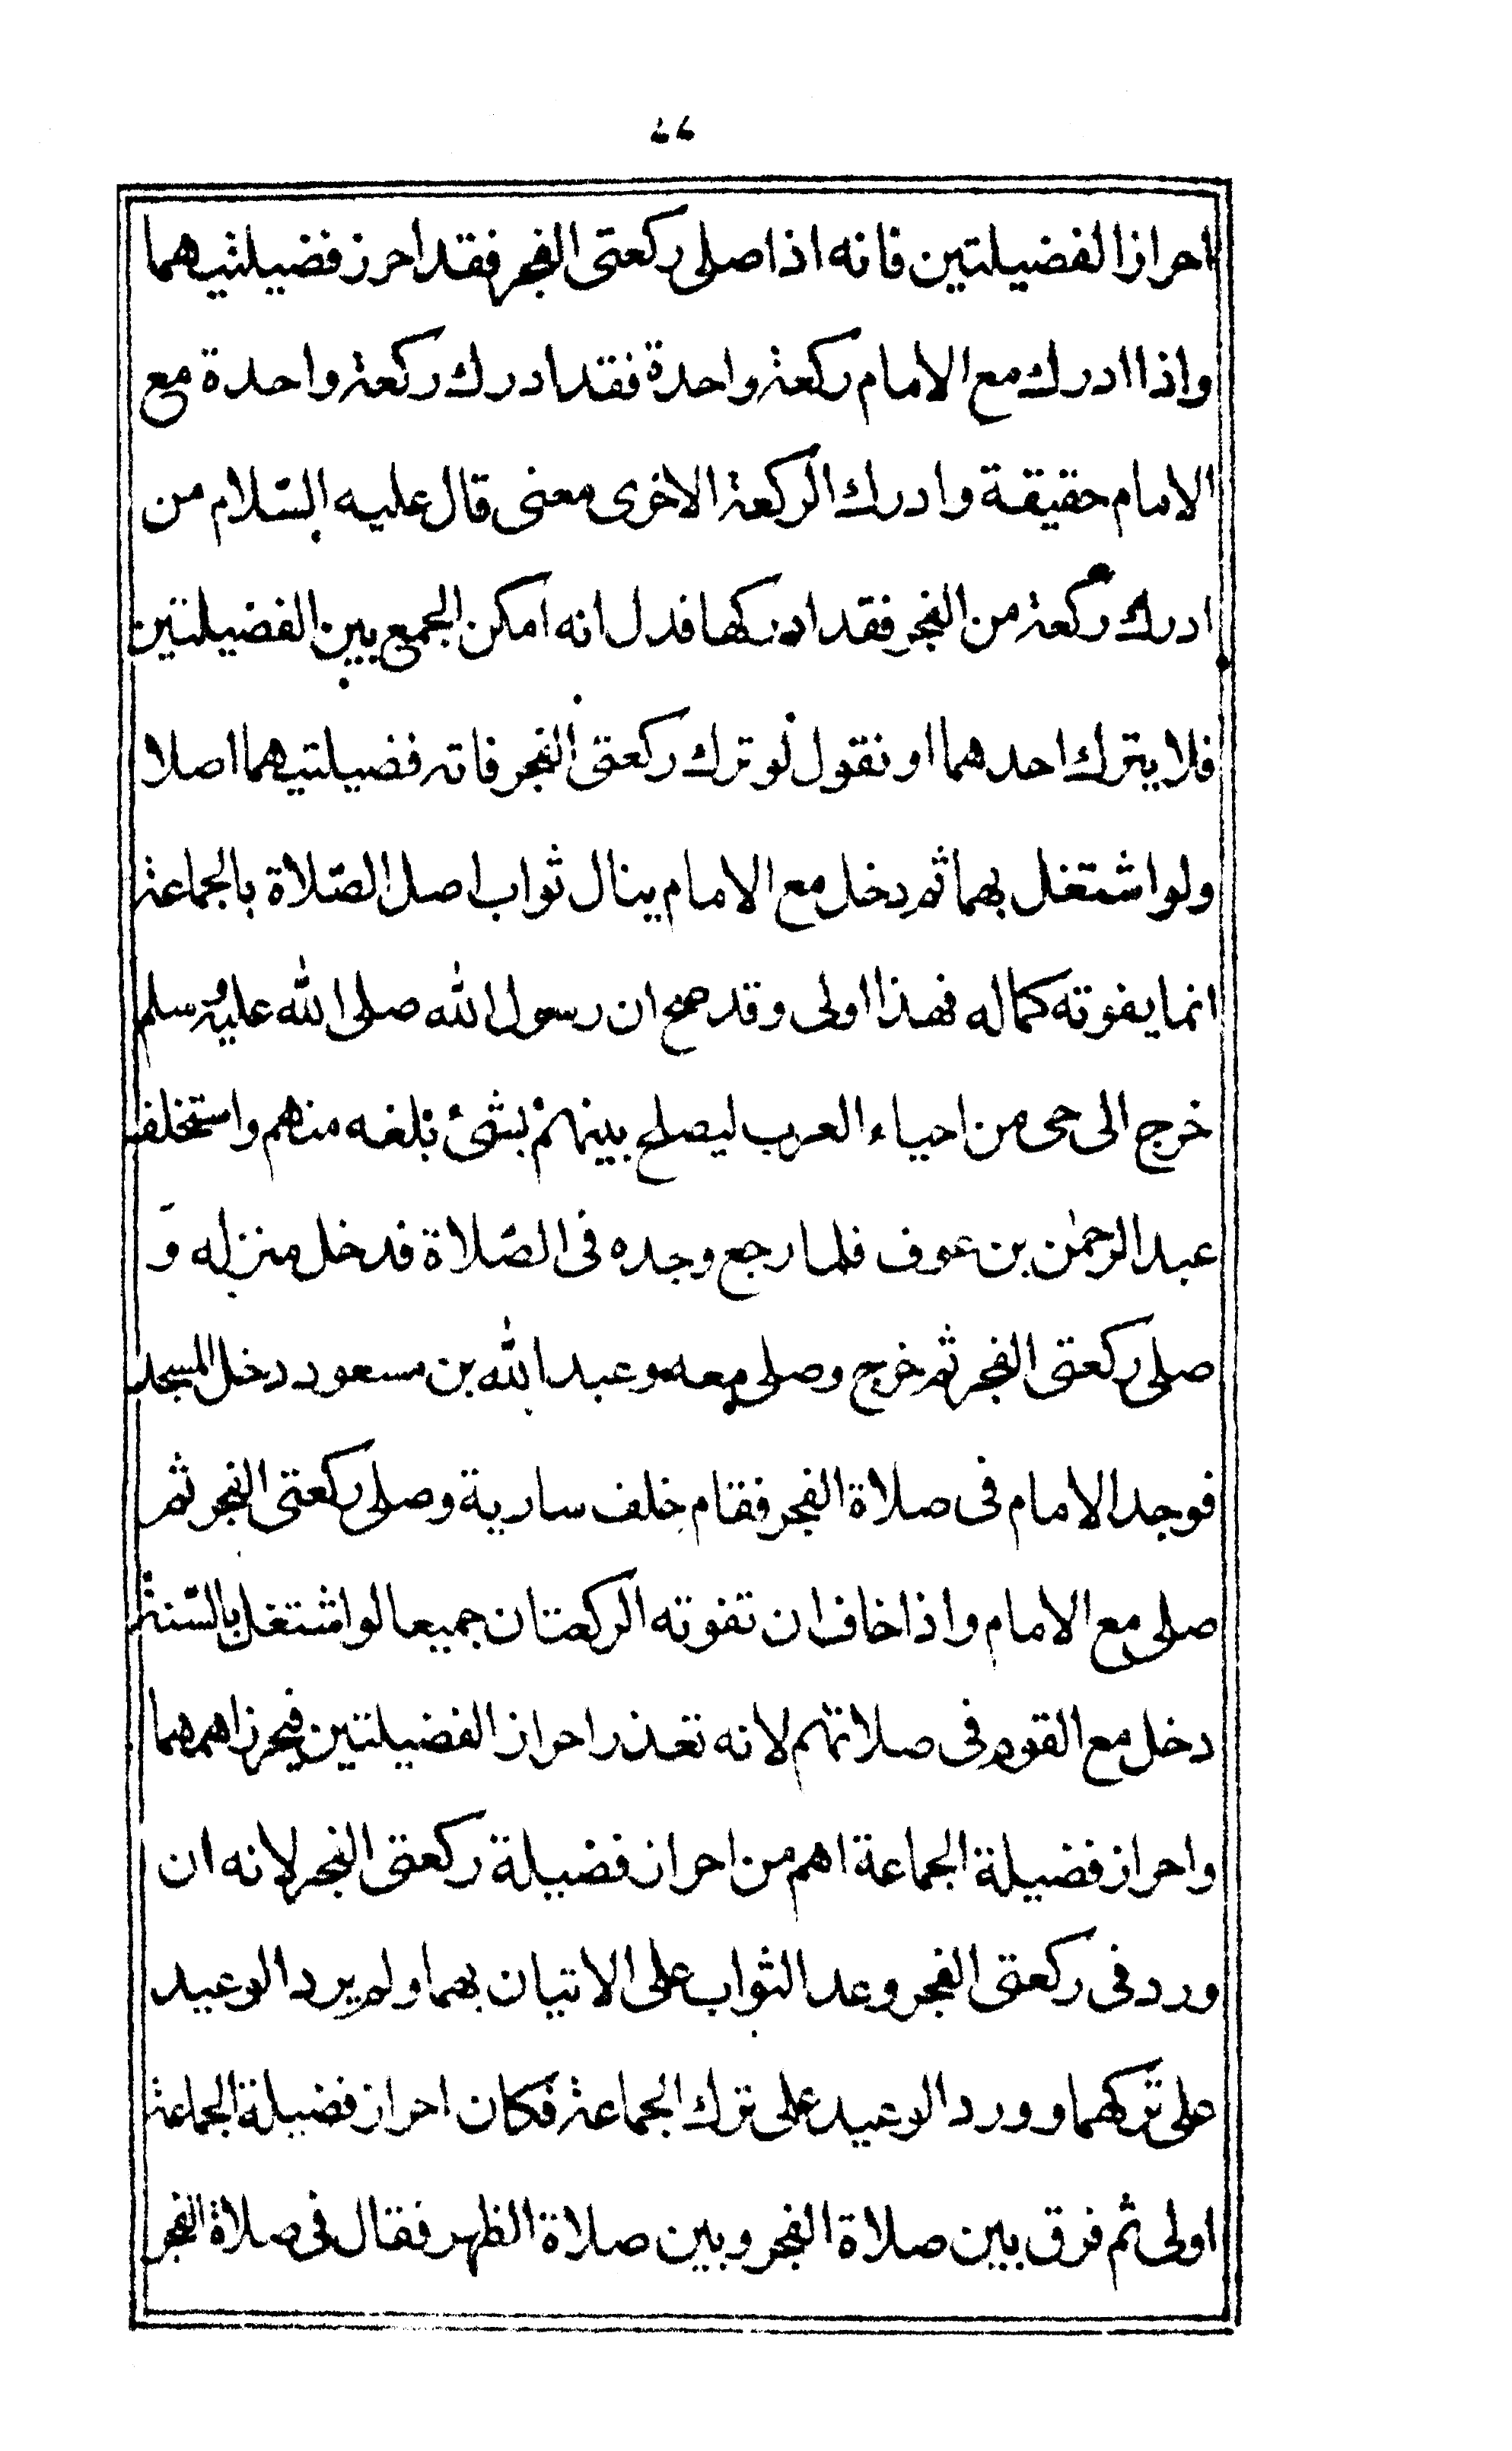 احراز الفضيلتين فانه اذا صلى ركعتى الفجر فقد احرز فضيلتيهما
واذا ادرك مع الامام ركعة واحدة فقد ادرك ركعة واحدة مع
الامام حقيقة وادرك الركعة الاخرى معنى قال عليه السّلام من
ادرك ركعة من الفجر فقد ادركها فدل انه امكن الجمع بين الفضيلتين
فلا يترك احدهما او نقول لو ترك ركعتى الفجر فاته فضيلتيهما اصلا
ولو اشتغل بهما ثم دخل مع الامام ينال ثواب اصل الصّلاة بالجماعة
انما يفوته كماله فهذا اولى وقد صح ان رسول الله صلى الله عليه وسلم
خرج الى حى من احياء العرب ليصلح بينهم بشئ بلغه منهم واستخلف
عبد الرحمٰن بن عوف فلما رجع وجده فى الصّلاة فدخل منزله وَ
صلى ركعتى الفجر ثم خرج وصلى معه وعبد الله بن مسعود دخل المسجد
فوجد الامام فى صلاة الفجر فقام خلف سارية وصلى ركعتى الفجر ثم
صلى مع الامام واذا خاف ان تفوته الركعتان جميعا لو اشتغل بالسّنة
دخل مع القوم فى صلاتهم لانه تعذر احراز الفضيلتين فيحرز اهمهما
واحراز فضيلة الجماعة اهم من احراز فضيلة ركعتى الفجر لانه ان
ورد فى ركعتى الفجر وعد الثواب على الاتيان بهما ولم يرد الوعيد
على تركهما وورد الوعيد على ترك الجماعة فكان احراز فضيلة الجماعة
اولى ثم فرق بين صلاة الفجر وبين صلاة الظهر فقال فى صلاة الفجر